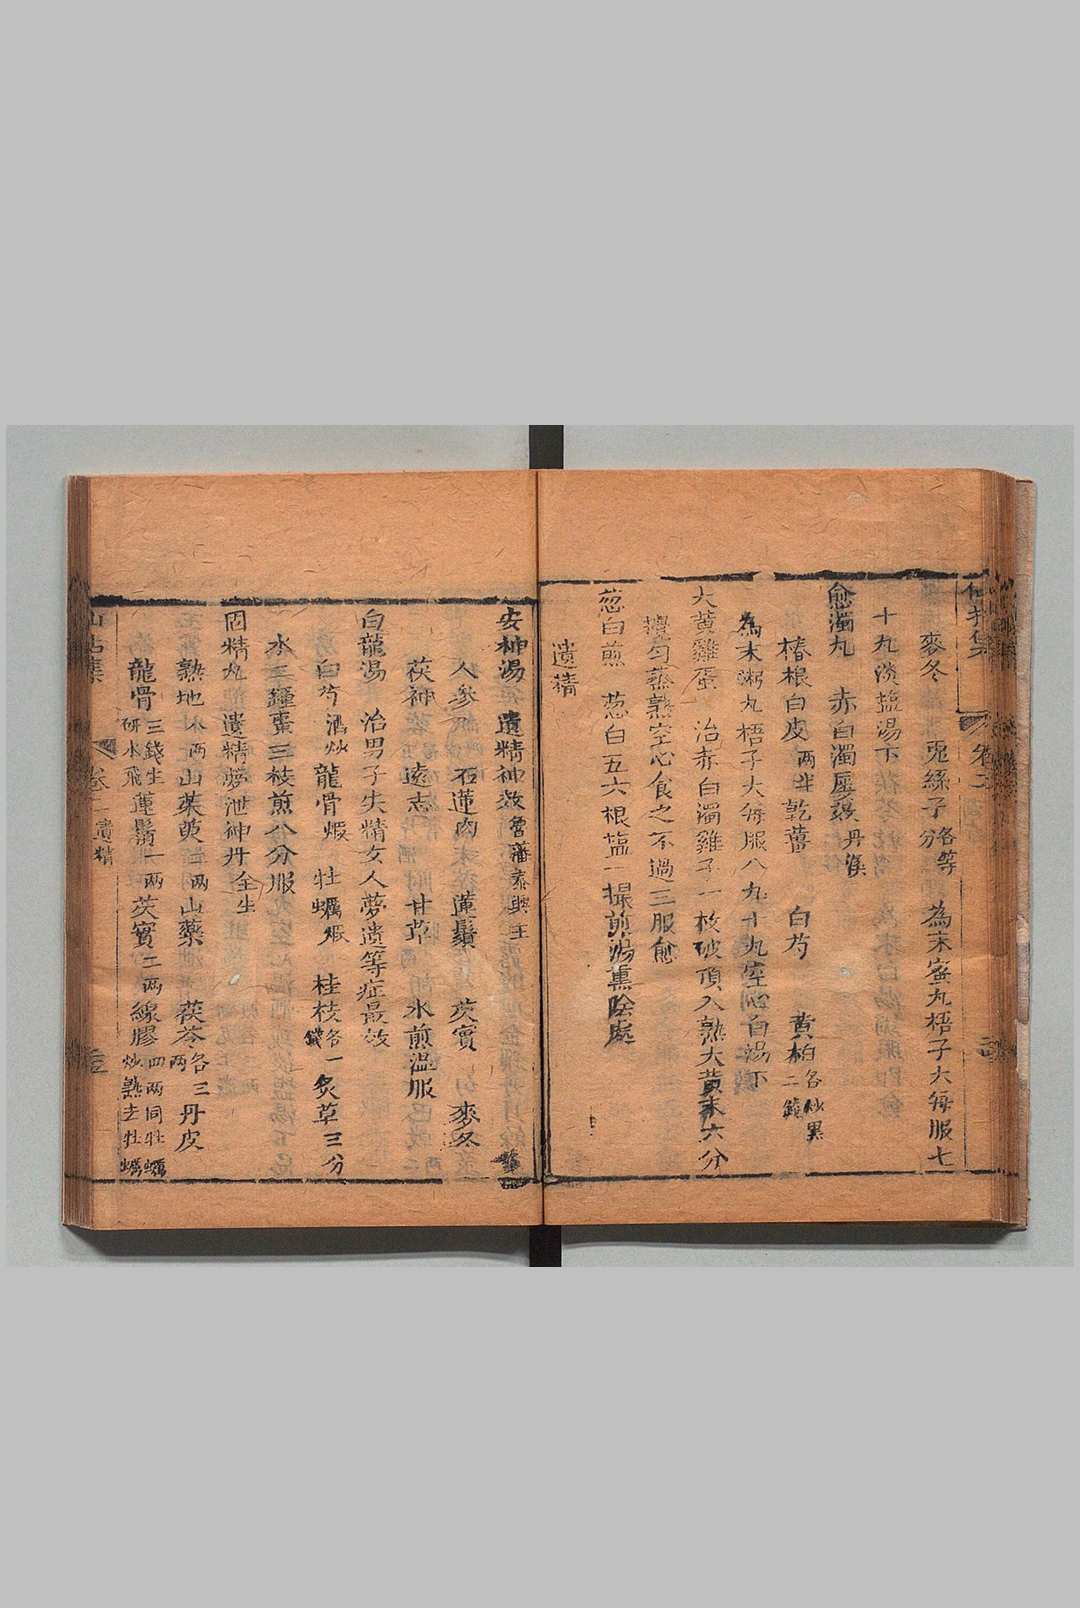 仙拈集 卷二
麥冬 兎絲子各等分 為末蜜丸梧子大每服七
十九淡塩湯下
愈濁丸 赤白濁屡效丹溪
椿根白皮兩半 乾薑 白芍 黃柏各炒黑二錢
為末粥丸梧子大每服八九十丸空心白湯下
大黃雞蛋 治赤白濁雞子一枚破頂入熟大黃末六分
攪勻蒸熟空心食之不過三服愈
葱白煎 葱白五六根塩一撮煎湯熏陰處
遺精
安神湯 遺精神效魯藩泰興王
人參 石蓮肉 蓮鬚 芡實 麥冬
茯神 遠志 甘草 水煎温服
白龍湯 治男子失精女人夢遺等症最效
白芍酒炒 龍骨煅 牡蠣煅 桂枝各一錢 炙草三分
水三鍾棗三枝煎八分服
固精丸 遺精夢泄神丹全生
熟地 山茱萸 山藥 茯苓各三兩 丹皮
龍骨三錢生研水飛 蓮鬚一兩 芡實二兩 線膠四兩同牡蠣炒熟去牡蠣
仙拈集 卷二 遺精